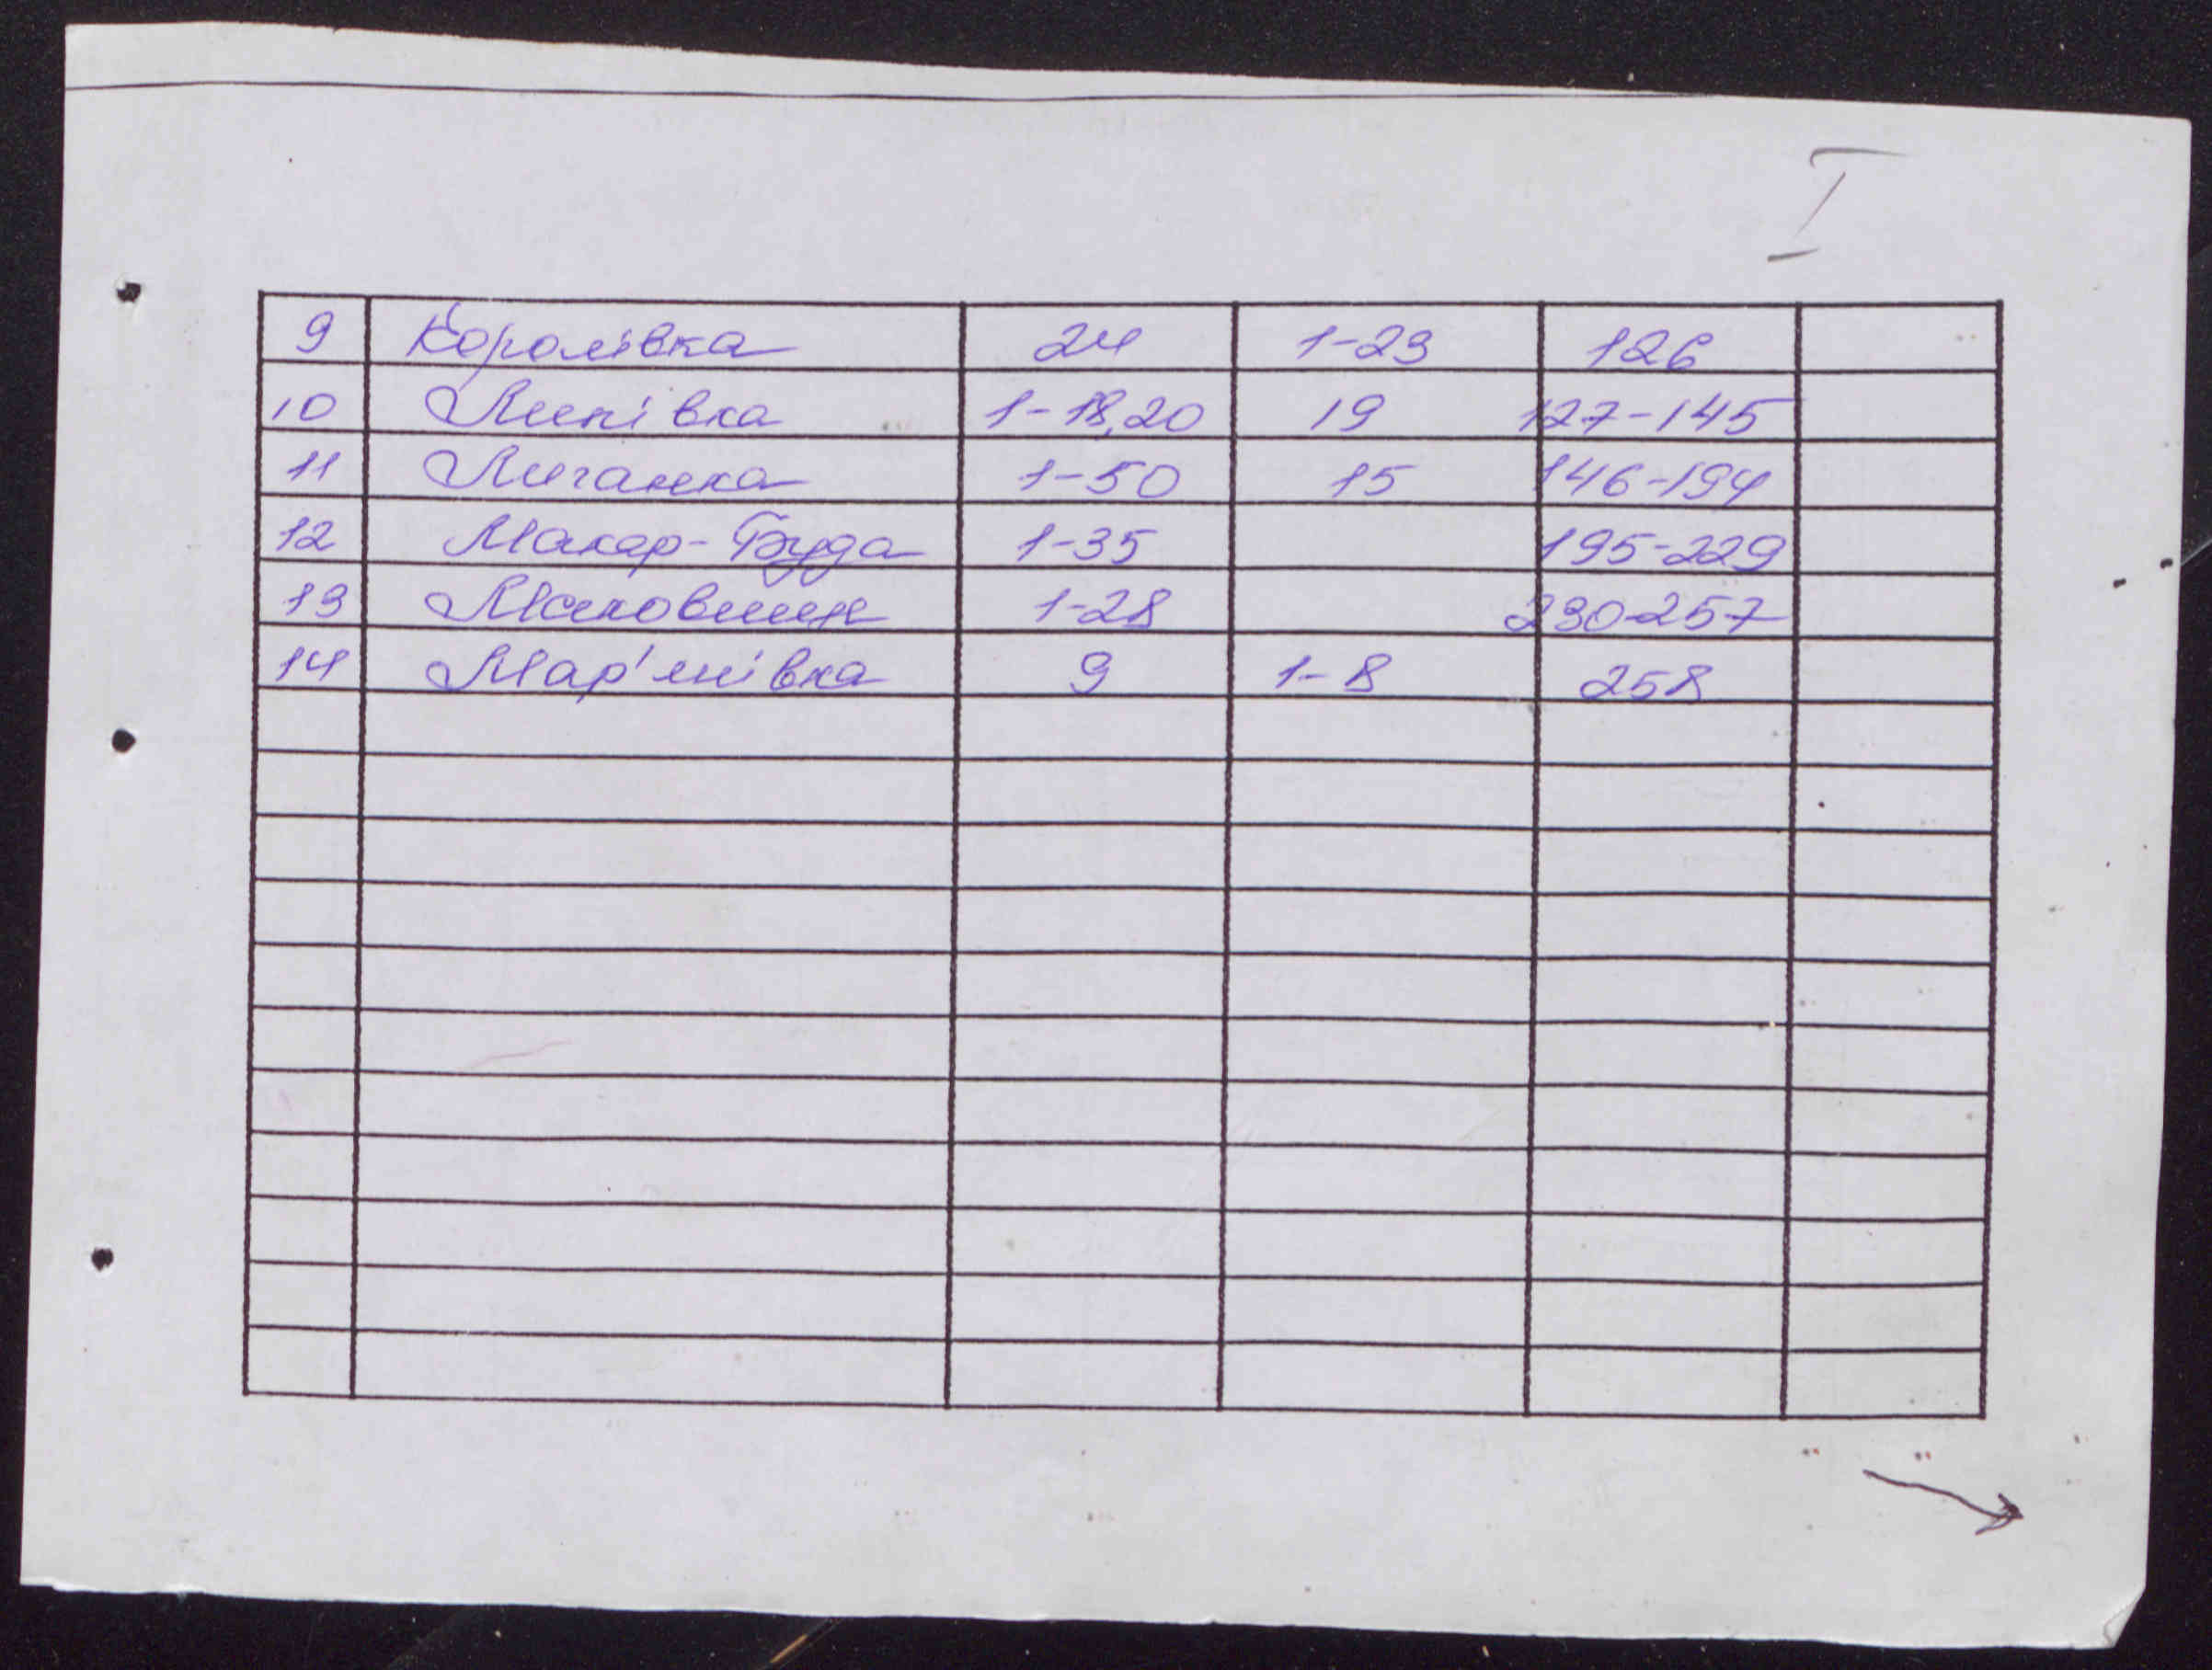 I
9 Королівка 24 1-23 126
10 Липівка 1-18,20 19 127-145
11 Личанка 1-50 15 146-194
12 Макар-Буда 1-35 195-229
13 1-28 230-257
14 Мар'янівка 9 1-8 258